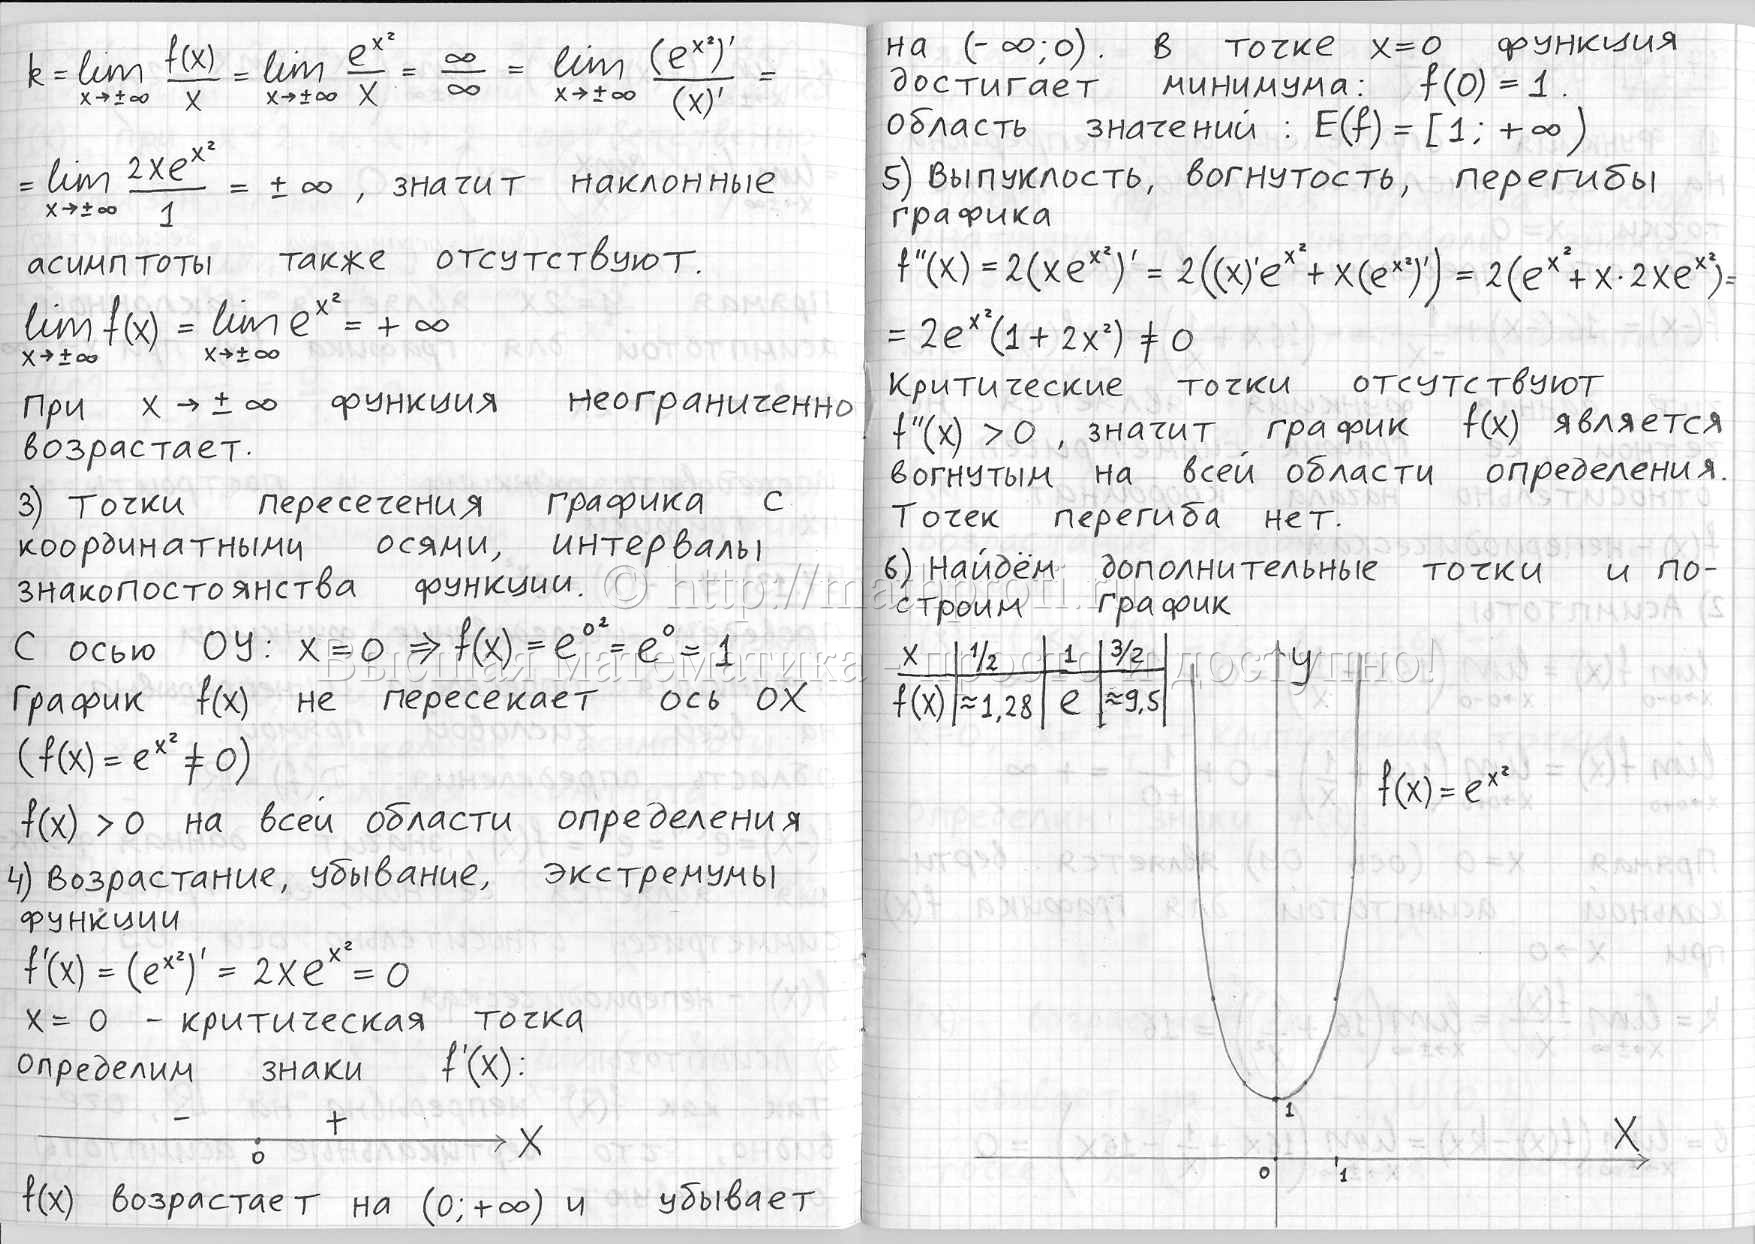 k = lim x→±∞ f(x)/x = lim x→±∞ e^x²/x = ∞/∞ = lim x→±∞ (e^x²)'/(x)' =
= lim x→±∞ 2xe^x²/1 = ±∞, значит наклонные
асимптоты также отсутствуют.
lim x→±∞ f(x) = lim x→±∞ e^x² = +∞
При x→±∞ функция неограниченно
возрастает.
3) Точки пересечения графика с
координатными осями, интервалы
знакопостоянства функции.
С осью OY: x=0 ⇒ f(x) = e^0² = e^0 = 1
График f(x) не пересекает ось OX
(f(x) = e^x² ≠ 0)
f(x) > 0 на всей области определения
4) Возрастание, убывание, экстремумы
функции
f'(x) = (e^x²)' = 2xe^x² = 0
x = 0 – критическая точка
Определим знаки f'(x):
− +
0 X
f(x) возрастает на (0; +∞) и убывает
на (-∞; 0). В точке x=0 функция
достигает минимума: f(0) = 1.
Область значений: E(f) = [1; +∞)
5) Выпуклость, вогнутость, перегибы
графика
f''(x) = 2(xe^x²)' = 2((x)'e^x² + x(e^x²)') = 2(e^x² + x·2xe^x²) =
= 2e^x²(1 + 2x²) ≠ 0
Критические точки отсутствуют
f''(x) > 0, значит график f(x) является
вогнутым на всей области определения.
Точек перегиба нет.
6) Найдём дополнительные точки и по-
строим график
x | 1/2 | 1 | 3/2
f(x) | ≈1,28 | e | ≈9,5
y
f(x) = e^x²
1
X
0 1
© http://mathprofi.r
Высшая математика – просто и доступно!